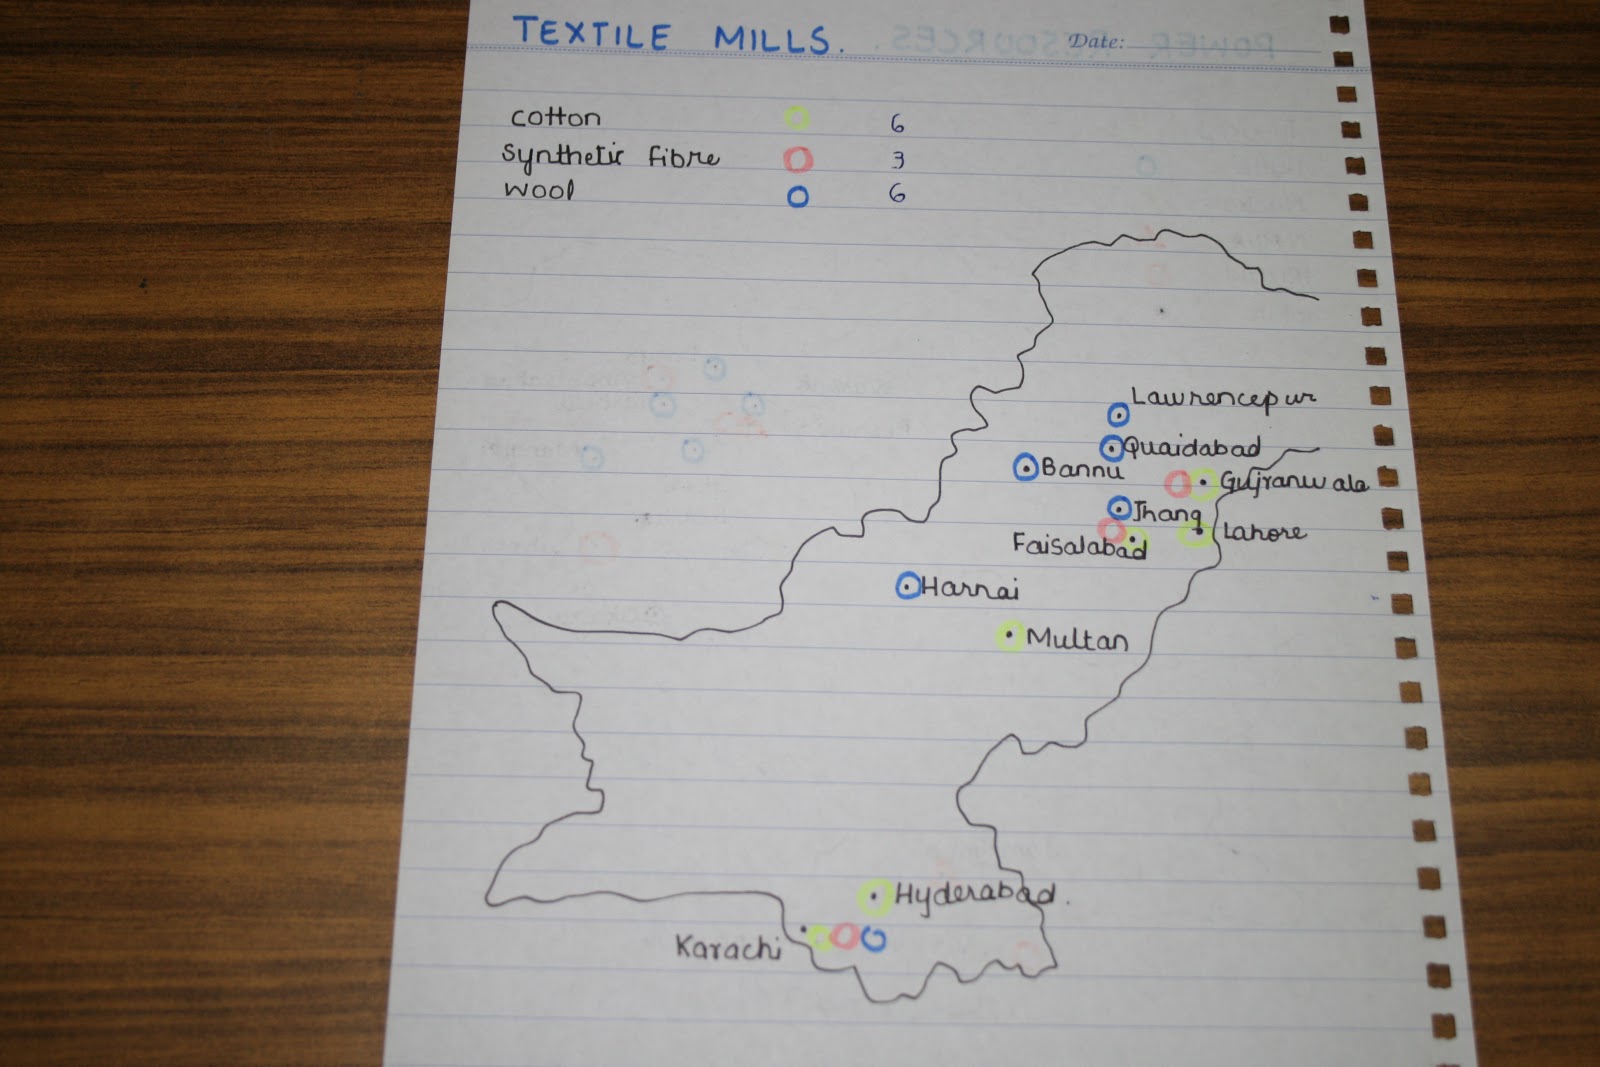 TEXTILE MILLS.
Date:
cotton 6
synthetic fibre 3
wool 6
Lawrencepur
Quaidabad
Bannu
Gujranwala
Jhang
Lahore
Faisalabad
Harnai
Multan
Hyderabad.
Karachi